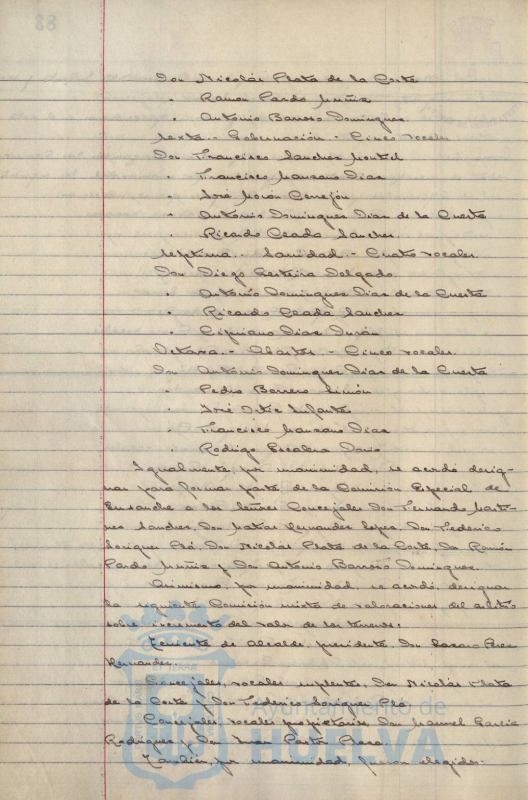 Don Nicolás Plata de la Corte
" Ramon Pardo Muñiz
" Antonio Barroso Dominguez
Sexta.- Gobernación.- Cinco vocales
Don Francisco Sanchez Montil
" Francisco Manzano Diaz
" José Morón Cerrejón
" Antonio Dominguez Diaz de la Cuesta
" Ricardo Ceada Sanchez
Septima.- Sanidad.- Cuatro vocales
Don Diego Delgado
" Antonio Dominguez Diaz de la Cuesta
" Ricardo Ceada Sanchez
" Cipriano Diaz Durán
Octava.- Abastos.- Cinco vocales
Don Antonio Dominguez Diaz de la Cuesta
" Pedro Borrero Limón
" José Ortiz Infante
" Francisco Manzano Diaz
" Rodrigo Escalera
Igualmente, por unanimidad, se acordó desig-
nar para formar parte de la Comisión Especial de
Ensanche a los señores Concejales Don Fernando Marti-
nez Sanchez, Don Matías Hernandez Lopez, Don Federico
Don Nicolás Plata de la Corte, Don Ramón
Pardo Muñiz y Don Antonio Barroso Dominguez.
Asimismo, por unanimidad, se acordó designar
la siguiente Comisión mixta de valoraciones del arbitrio
sobre incremento del valor de los terrenos:
Teniente de Alcalde, presidente, Don Perez
Hernandez.
Concejales, vocales suplentes, Don Nicolás Plata
de la Corte y Don Federico
Concejales, vocales propietarios Don Manuel Garcia
Rodriguez y Don Juan Pastor
Tambien, por unanimidad, fueron elegidos:
Ayuntamiento de
HUELVA